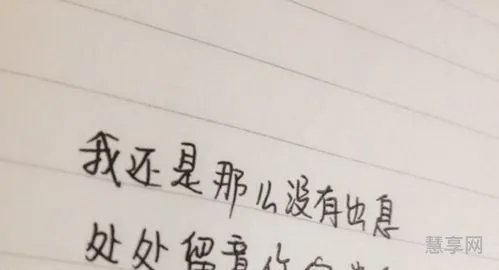 我还是那么没有出息
处处留意你
慧享网